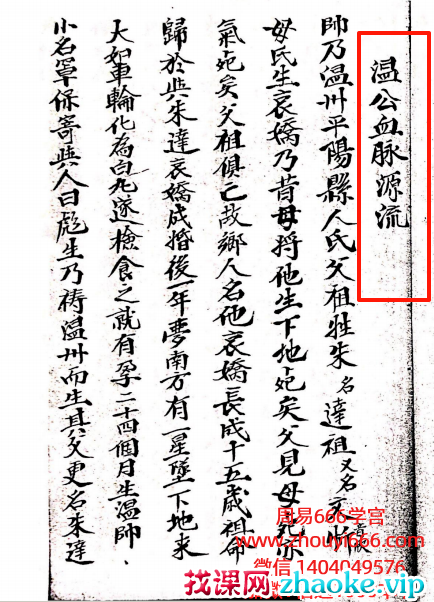 温公血脉源流
帥乃温州平陽縣人氏父祖姓朱名達祖又名
母氏生哀嬌乃昔母将他生下地死矣父見母死
氣死矣父祖俱亡故鄉人名他哀嬌長成十五歲祖命
歸於與朱達哀嬌成婚後一年夢南方有一星墜下地来
大如車輪化為白丸遂撿食之就有孕二十四個月生温帥、
小名罩保寄與人曰彪生乃祷温州而生其父更名朱達
周易666学宫
www.zhouyi666.com
微信 1404049576
找课网 zhaoke.vip